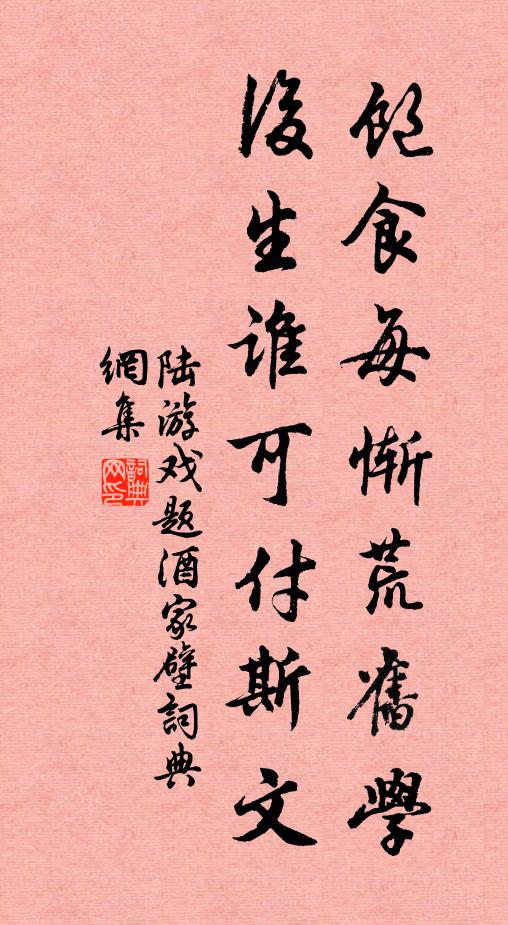 飽食每慚荒舊學
後生誰可付斯文
陆游戏题酒家壁詞典
網集
詞典网印